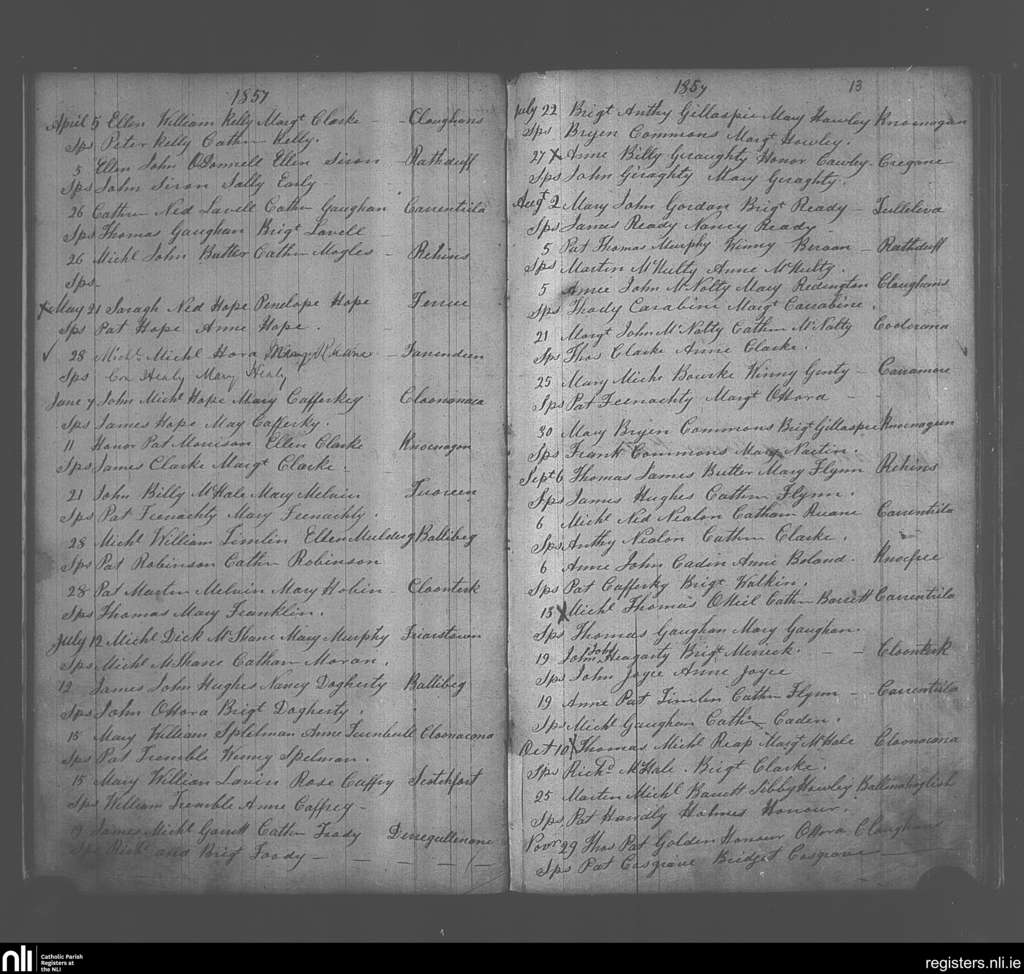 1857
April 5 Ellen William Kelly Margt Clarke - - Cloughans
Sps Peter Kelly Cathn Kelly.
5 Ellen John ODonnell Ellen Siron - Rathduff
Sps John Siron Sally Early -
26 Cathn Ned Lavell Cathn Gaughan - Carrentrila
Sps Thomas Gaughan Brigt Lavell
26 Michl John Butler Cathn Mogles - Rehins
Sps -
x May 21 Saragh Ned Hope Penelope Hope
Sps Pat Hope Anne Hope.
✓ 28 Michl Michl Hora
Sps Healy Mary Healy
June 7 John Michl Hope Mary Cafferkey Cloonanaca
Sps James Hope May Cafferky.
11 Honor Pat Morrison Ellen Clarke Knocnagon
Sps James Clarke Margt Clarke.
21 John Billy McHale Mary Melvin Tuoreen
Sps Pat Feenachty Mary Feenachty.
28 Michl William Timlin Ellen Ballibeg
Sps Pat Robinson Cathn Robinson
28 Pat Martin Melvin Mary Hobin - Cloontirk
Sps Thomas Mary Franklin.
July 12 Michl Dick McShane Mary Murphy Friarstown
Sps Michl McShane Cathan Moran.
12 James John Hughes Nancy Dogherty Ballibeg
Sps John OHora Brigt Dogherty.
15 Mary William Spelelman Anne Turnbull Cloonacana
Sps Pat Tremble Winny Spelman.
15 Mary William Lavin Rose Caffry Scotchfort
Sps William Tremble Anne Caffrey -
9 James Michl Garett Cathn Toody Derrequllenane
Sps Richd and Brigt Toody - - - -
1857 13
July 22 Brigt Anthy Gillaspie Mary Hawley Knocnagun
Sps Bryen Commons Margt Howley.
27 x Anne Billy Geraughty Honor Cawley - Cregane
Sps John Giraghty Mary Geraghty.
Augt 2 Mary John Gordan Brigt Ready -
Sps James Ready Nancy Ready -
5 Pat Thomas Murphy Winny - Rathduff
Sps Martin McNulty Anne McNulty.
5 John McNolty Mary Redington Cloughans
Sps Thady Carabine Margt Carrabine.
21 Margt John McNolty Cathn McNolty Coolcrana
Sps Thos Clarke Anne Clarke.
25 Mary Michl Bourke Winny Ginty - Carramore
Sps Pat Feenachty Margt OHora - -
30 Mary Bryen Commons Brigt Gillaspie Knocnagun
Sps Frank Commons Mary Nactin.
Sept 6 Thomas James Butler Mary Flynn Rehins
Sps James Hughes Cathn Flynn.
6 Michl Ned Nealon Catharn Ruane Carrentrila
Sps Anthy Nealon Cathn Clarke.
6 Anne John Cadin Anne Boland. Knocfree
Sps Pat Cafferky Brigt Walkin.
13 x Michl Thomas ONeil Cathn Barett Carrentrila
Sps Thomas Gaughan Mary Gaughan.
19 John John Heagarty Brigt Merrick. - - Cloontirk
Sps John Joyce Anne Joyce
19 Anne Pat Timlin Cathn Flynn - Carrentrila
Sps Michl Gaughan Cathn Caden.
Oct 10 x Thomas Michl Reap Margt McHale Cloonacana
Sps Richd McHale. Brigt Clarke.
25 Martin Michl Barrett Sibby Howley
Sps Pat Handly Holmes Honour.
Novr 29 Thos Pat Golden Honour OHora Cloughans
Sps Pat Cosgrave Bridget Cosgrave
nli Catholic Parish
Registers at
the NLI
13
registers.nli.ie